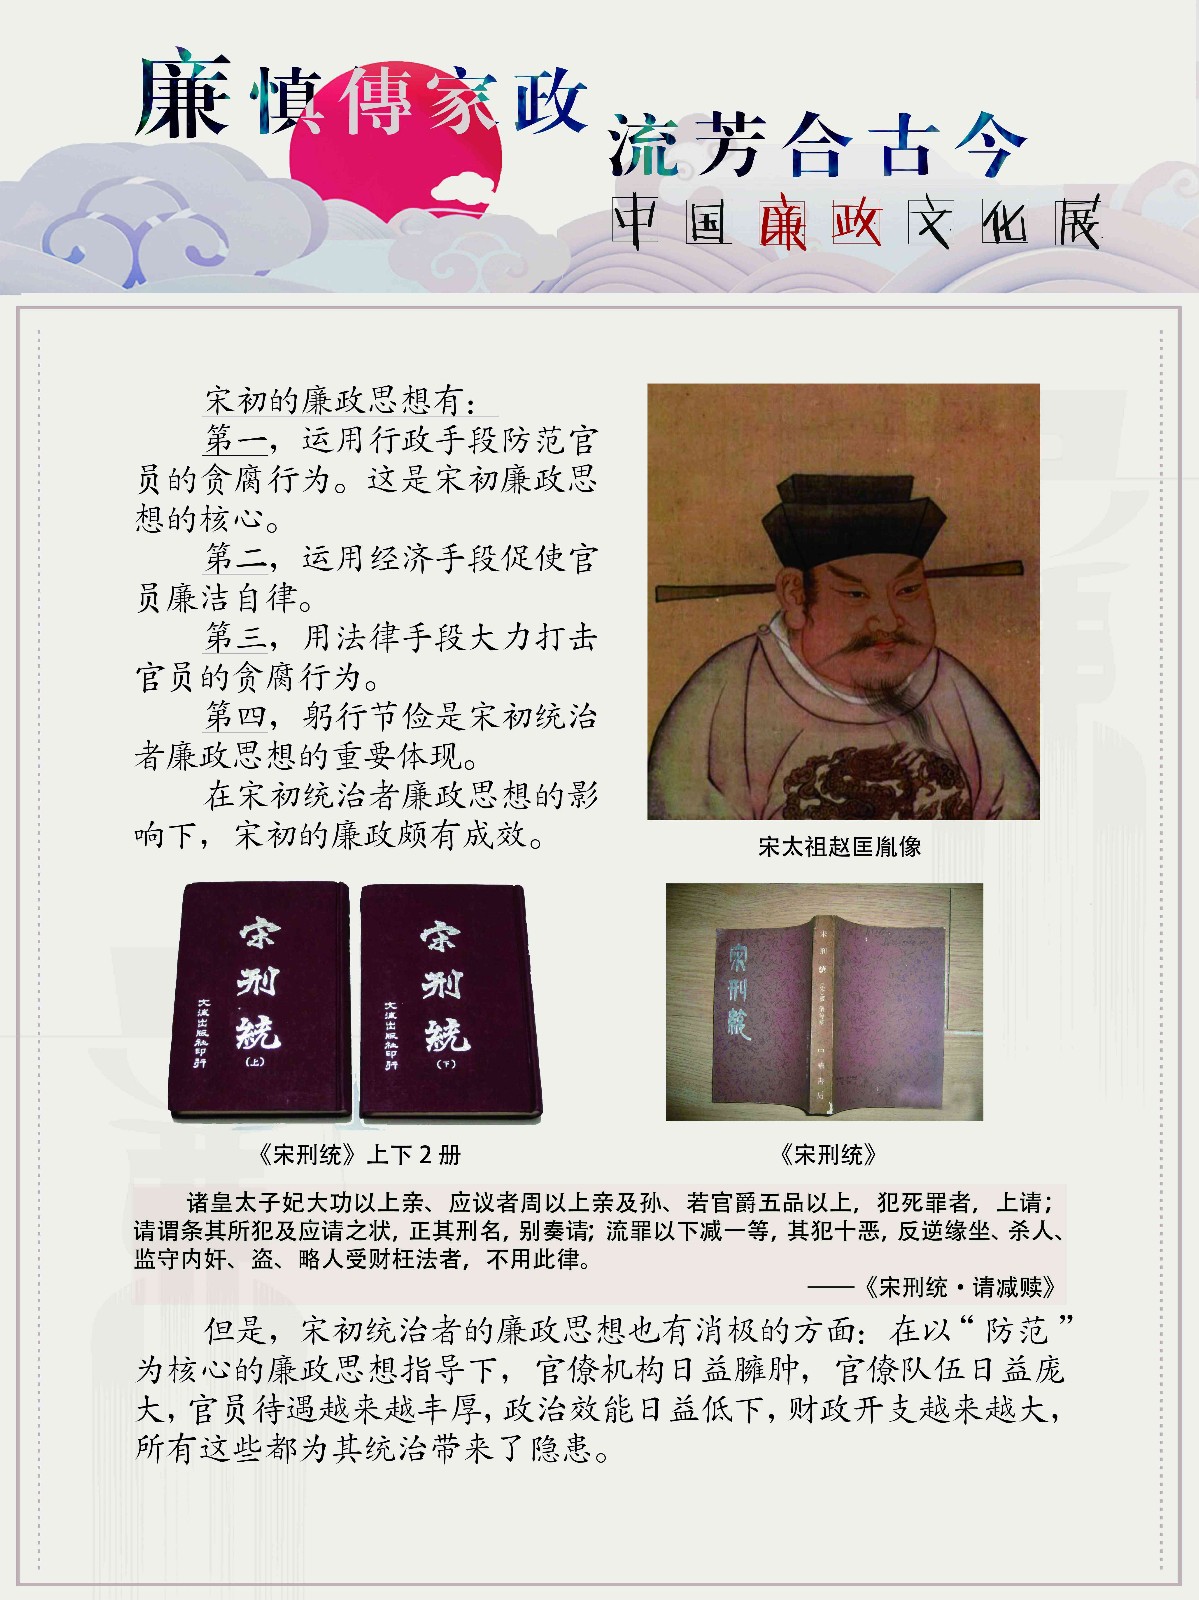 廉慎傳家政
流芳合古今
中国廉政文化展
宋初的廉政思想有：
第一，运用行政手段防范官
员的贪腐行为。这是宋初廉政思
想的核心。
第二，运用经济手段促使官
员廉洁自律。
第三，用法律手段大力打击
官员的贪腐行为。
第四，躬行节俭是宋初统治
者廉政思想的重要体现。
在宋初统治者廉政思想的影
响下，宋初的廉政颇有成效。
宋太祖赵匡胤像
宋刑統
（上）
文海出版社印行
宋刑統
（下）
文海出版社印行
《宋刑统》上下 2 册
宋刑統
宋刑統
《宋刑统》
诸皇太子妃大功以上亲、应议者周以上亲及孙、若官爵五品以上，犯死罪者，上请；
请谓条其所犯及应请之状，正其刑名，别奏请；流罪以下减一等，其犯十恶，反逆缘坐、杀人、
监守内奸、盗、略人受财枉法者，不用此律。
——《宋刑统·请减赎》
但是，宋初统治者的廉政思想也有消极的方面：在以“防范”
为核心的廉政思想指导下，官僚机构日益臃肿，官僚队伍日益庞
大，官员待遇越来越丰厚，政治效能日益低下，财政开支越来越大，
所有这些都为其统治带来了隐患。